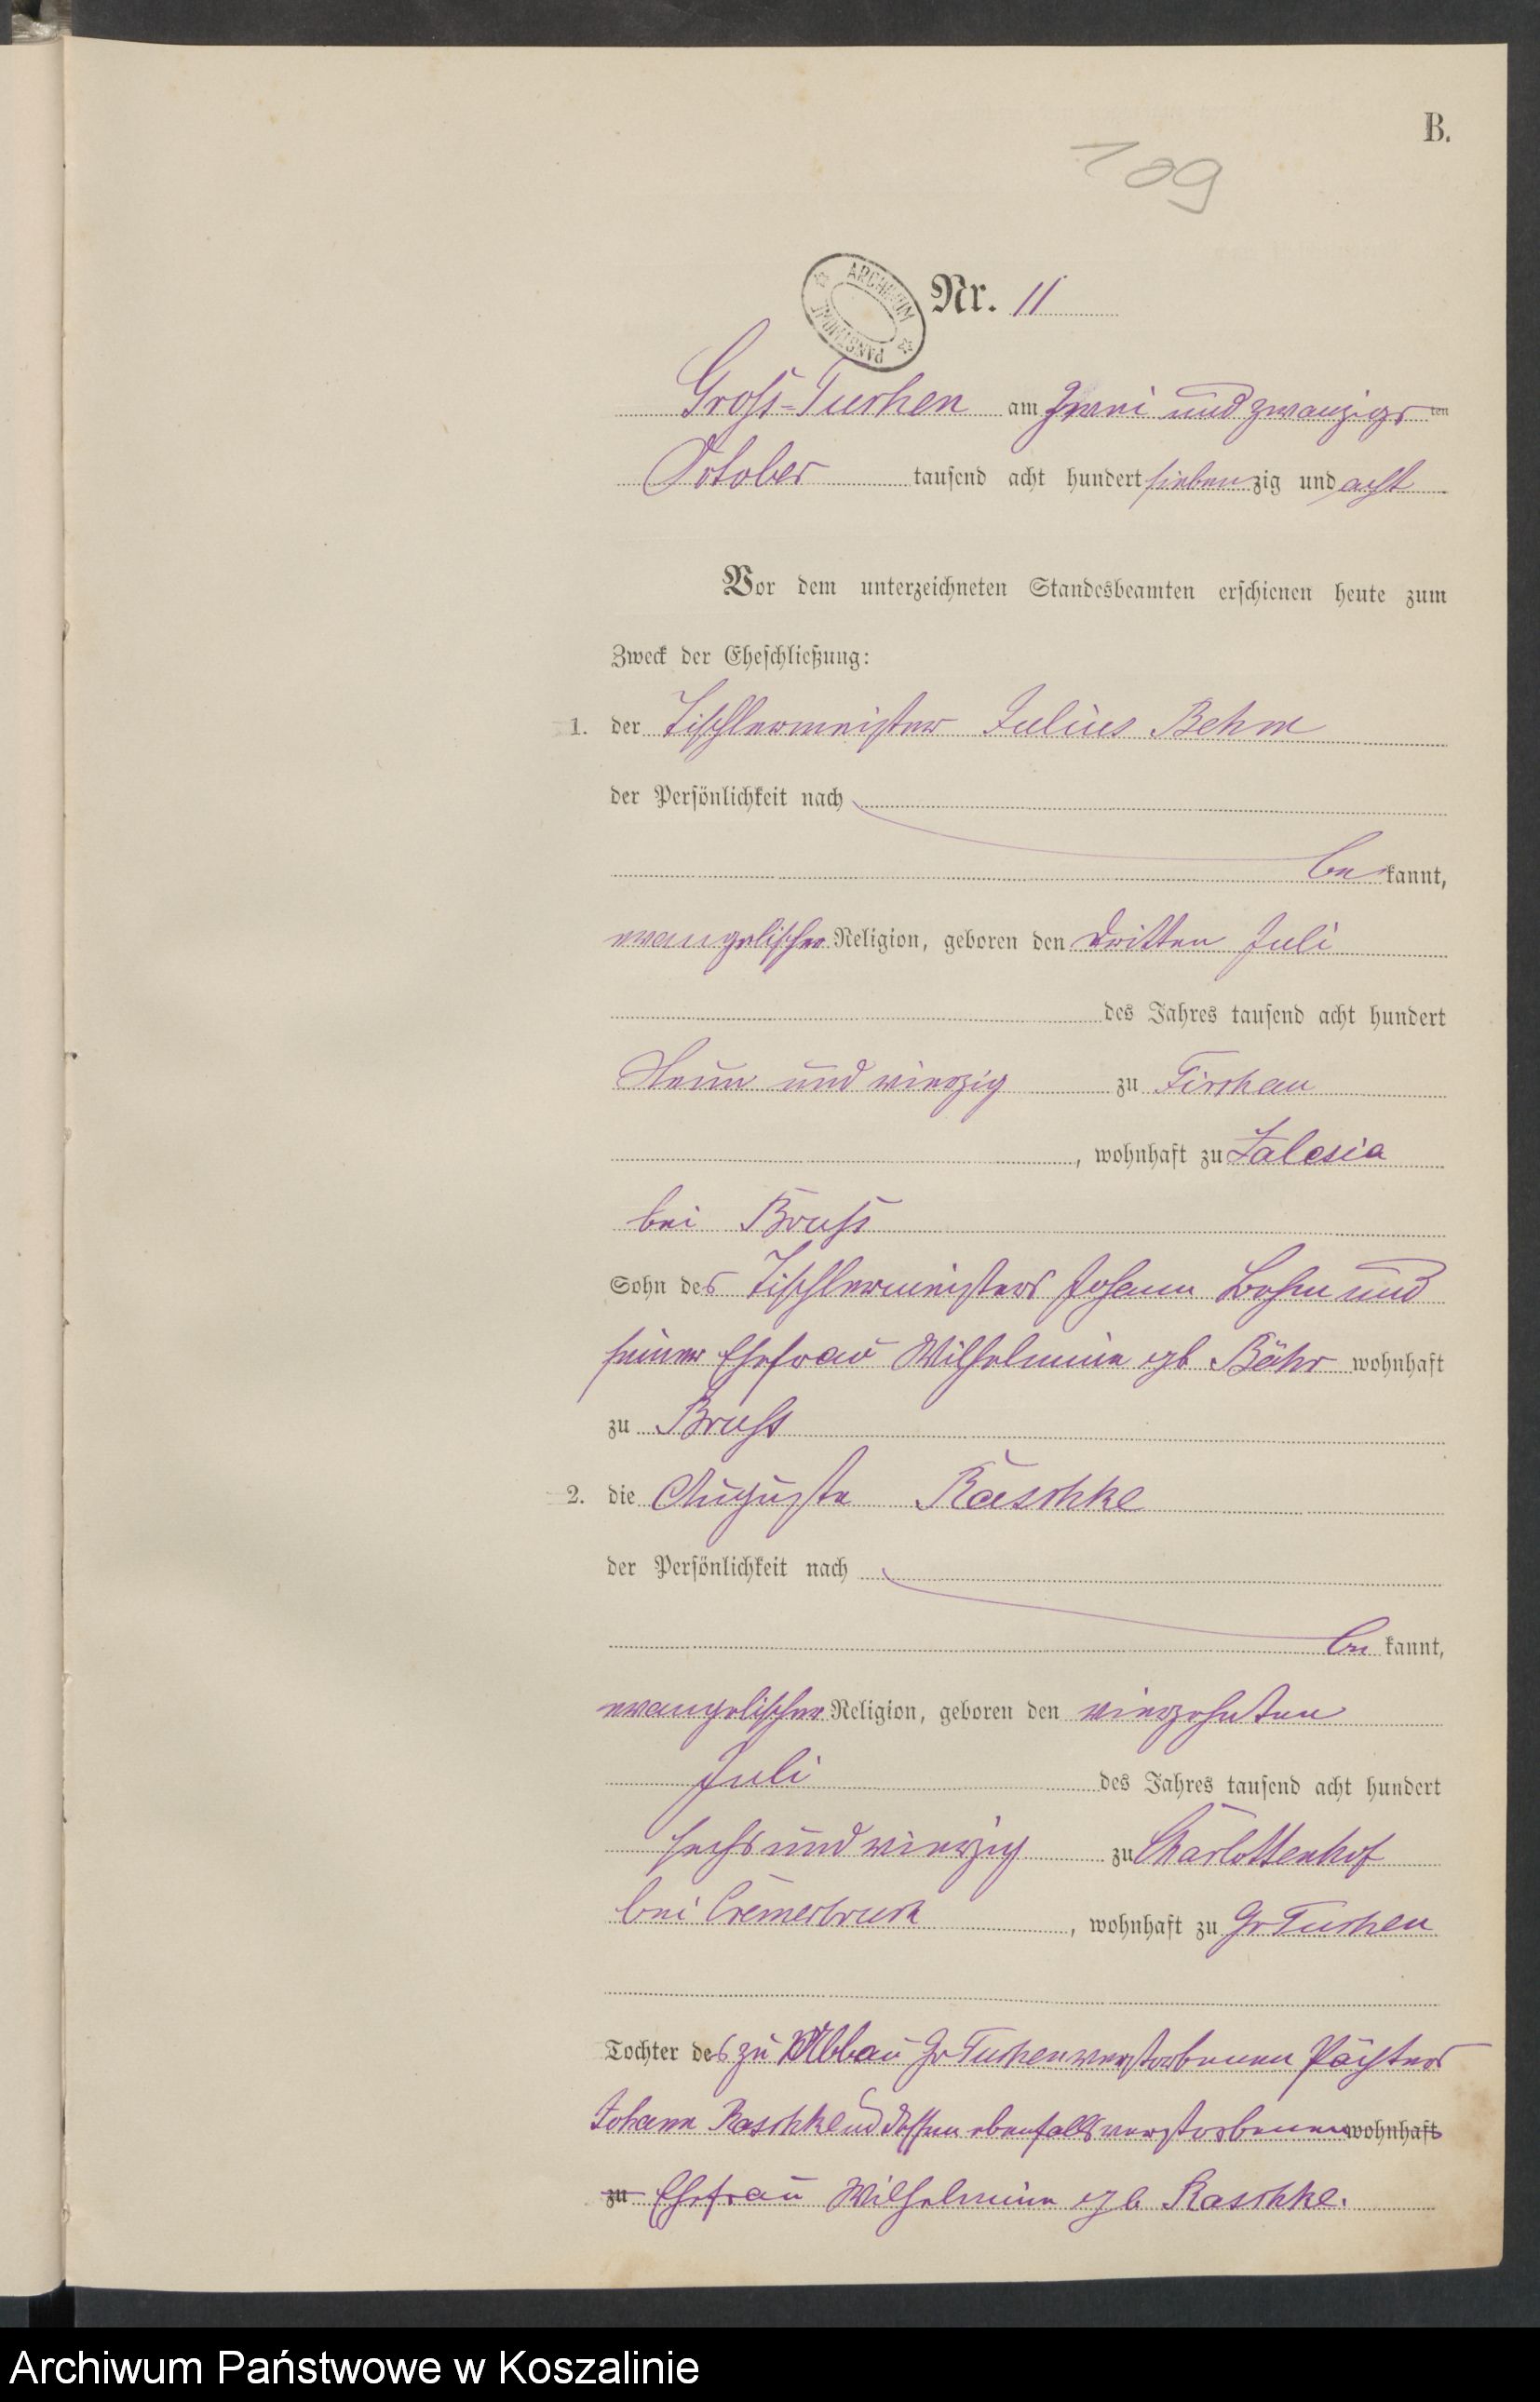 B.
109
ARCHIWUM PAŃSTWOWE
Nr. 11
Groß-Tuchen am zwei und zwanzigsten
October tausend acht hundert siebenzig und acht
Vor dem unterzeichneten Standesbeamten erschienen heute zum
Zweck der Eheschließung:
1. der Tischlermeister Julius Behm
der Persönlichkeit nach
bekannt,
evangelischer Religion, geboren den dritten Juli
des Jahres tausend acht hundert
Neun und vierzig zu Firchau
, wohnhaft zu Zalesia
bei Bruß
Sohn des Tischlermeisters Johann Behm und
seiner Ehefrau Wilhelmine gb Bähr wohnhaft
zu Bruß
2. die Auguste Raschke
der Persönlichkeit nach
bekannt,
evangelischer Religion, geboren den vierzehnten
Juli des Jahres tausend acht hundert
sechs und vierzig zu Charlottenhof
bei Cremerbruch, wohnhaft zu Gr Tuchen
Tochter des zu Abbau Gr Tuchen verstorbenen Pächters
Johann Raschke und dessen ebenfalls verstorbenen wohnhaft
zu Ehefrau Wilhelmine gb Raschke.
Archiwum Państwowe w Koszalinie